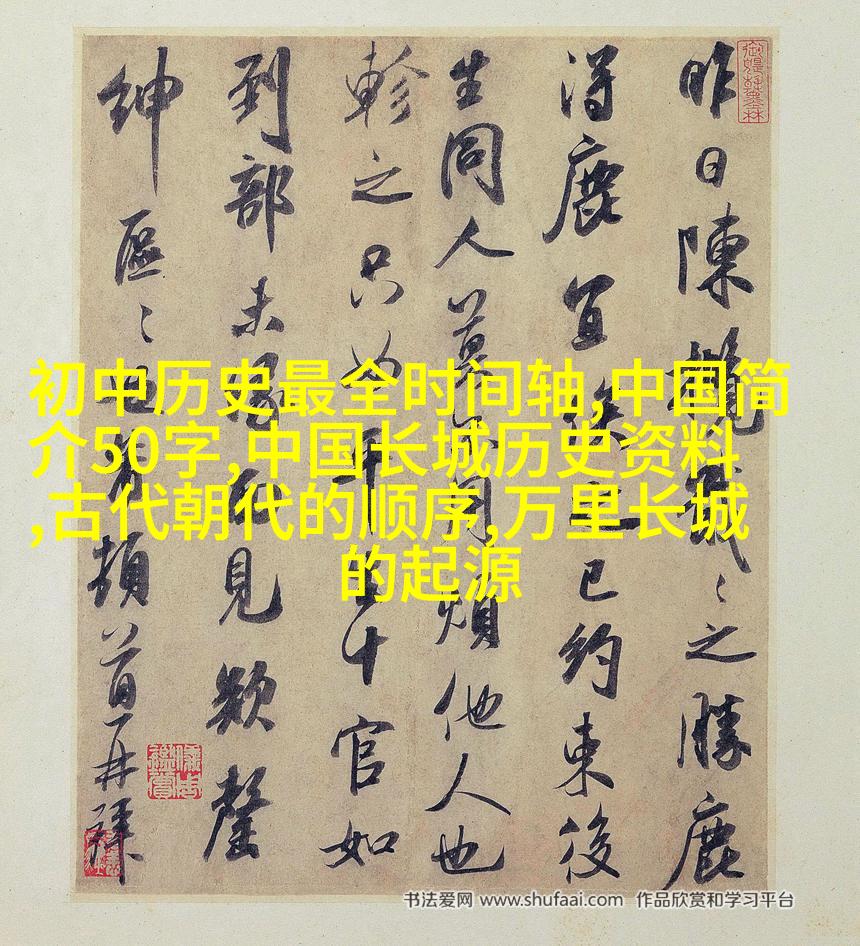 初中历史最全时间轴,中国简
介50字,中国长城历史资料
,古代朝代的顺序,万里长城
的起源
昨日陳
之勝鹿
得鹿宜
已約束後
生同人
煩他人也
軫之只
十官如
到部未
見欵罄
紳區〻
頓首再拜
书法爱网 www.shufaai.com 作品欣赏和学习平台